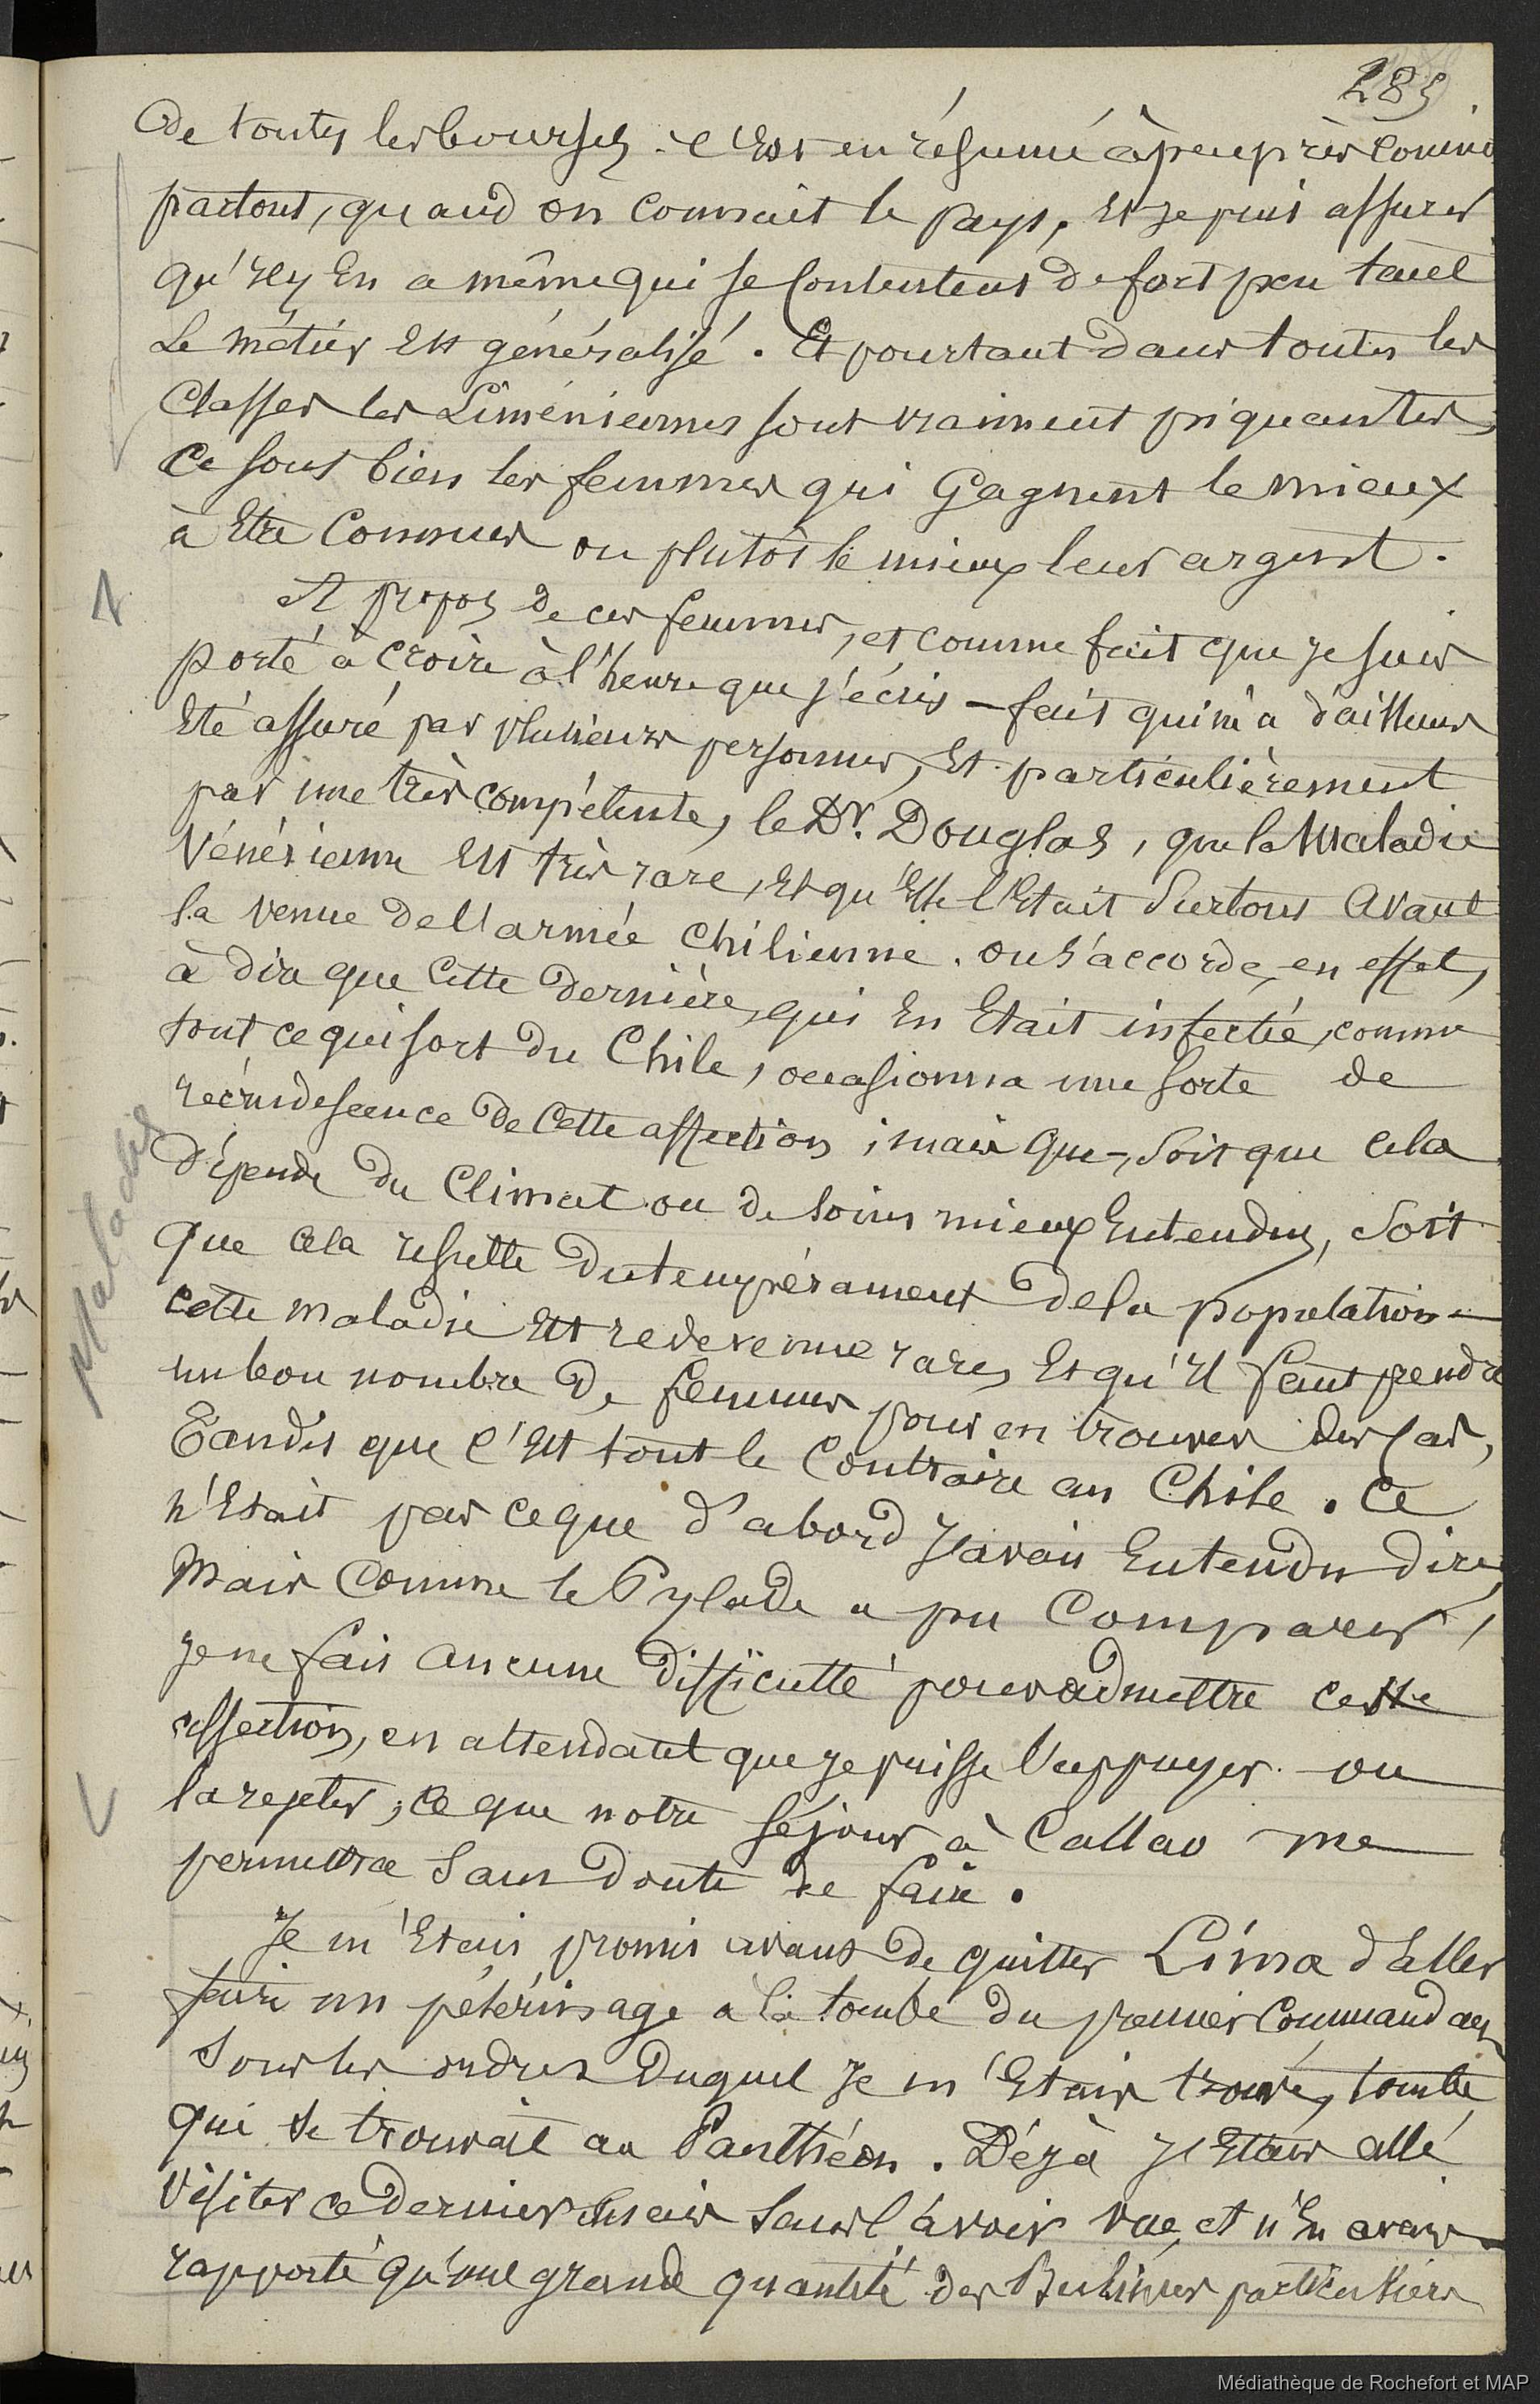 285
de toutes les bourses. c'Est en résumé à peu près comme
partout, quand on connait le pays, Et je puis assurer
qu'Il y En a même qui se contentent de fort peu tant
Le métier Est généralisé. Et pourtant dans toutes les
Classes les Liméniennes sont vraiment piquantes,
Ce sont bien les femmes qui Gagnent le mieux
à Etre Connues ou plutôt le mieux leur argent.
A propos de ces femmes, et comme fait que je suis
porté à croire à l'heure que j'écris — fait qui m'a d'ailleurs
Eté assuré par plusieurs personnes, Et particulièrement
par une très compétente, le Dr. Douglas, que la Maladie
Vénérienne Est très rare, Et qu'Elle l'Etait Surtout Avant
la venue de l'armée chilienne. on s'accorde, en effet,
à dire que Cette dernière, qui En Etait infectée, comme
tout ce qui sort du Chile, occasionna une sorte de
recrudescence de Cette affection ; mais que, soit que cela
dépende du Climat ou de soins mieux Entendus, soit
que cela résulte du tempérament de la population —
cette maladie Est redevenue rare, Et qu'Il faut prendre
un bon nombre de femmes pour en trouver des cas,
Tandis que c'Est tout le Contraire au Chile. Ce
n'Etait pas ce que d'abord J'avais Entendu dire,
Mais Comme le Pylade a pu Comparer,
je ne fais aucune difficulté pour admettre cette
assertion, en attendant que je puisse l'appuyer ou
la rejeter ; ce que notre séjour à Callao me
permettra Sans Doute de faire.
Je m'Etais promis avant de quitter Lima d'aller
faire un pélérinage a la tombe du premier Commandant
Sous les ordres Duquel Je m'Etais trouvé, tombe
qui se trouvait au Panthéon. Déjà J'Etais allé
Visiter ce dernier mais Sans l'avoir vue, et n'En avais
rapporté qu'une grande quantité des Bulimes particuliers
Maladies
Médiathèque de Rochefort et MAP